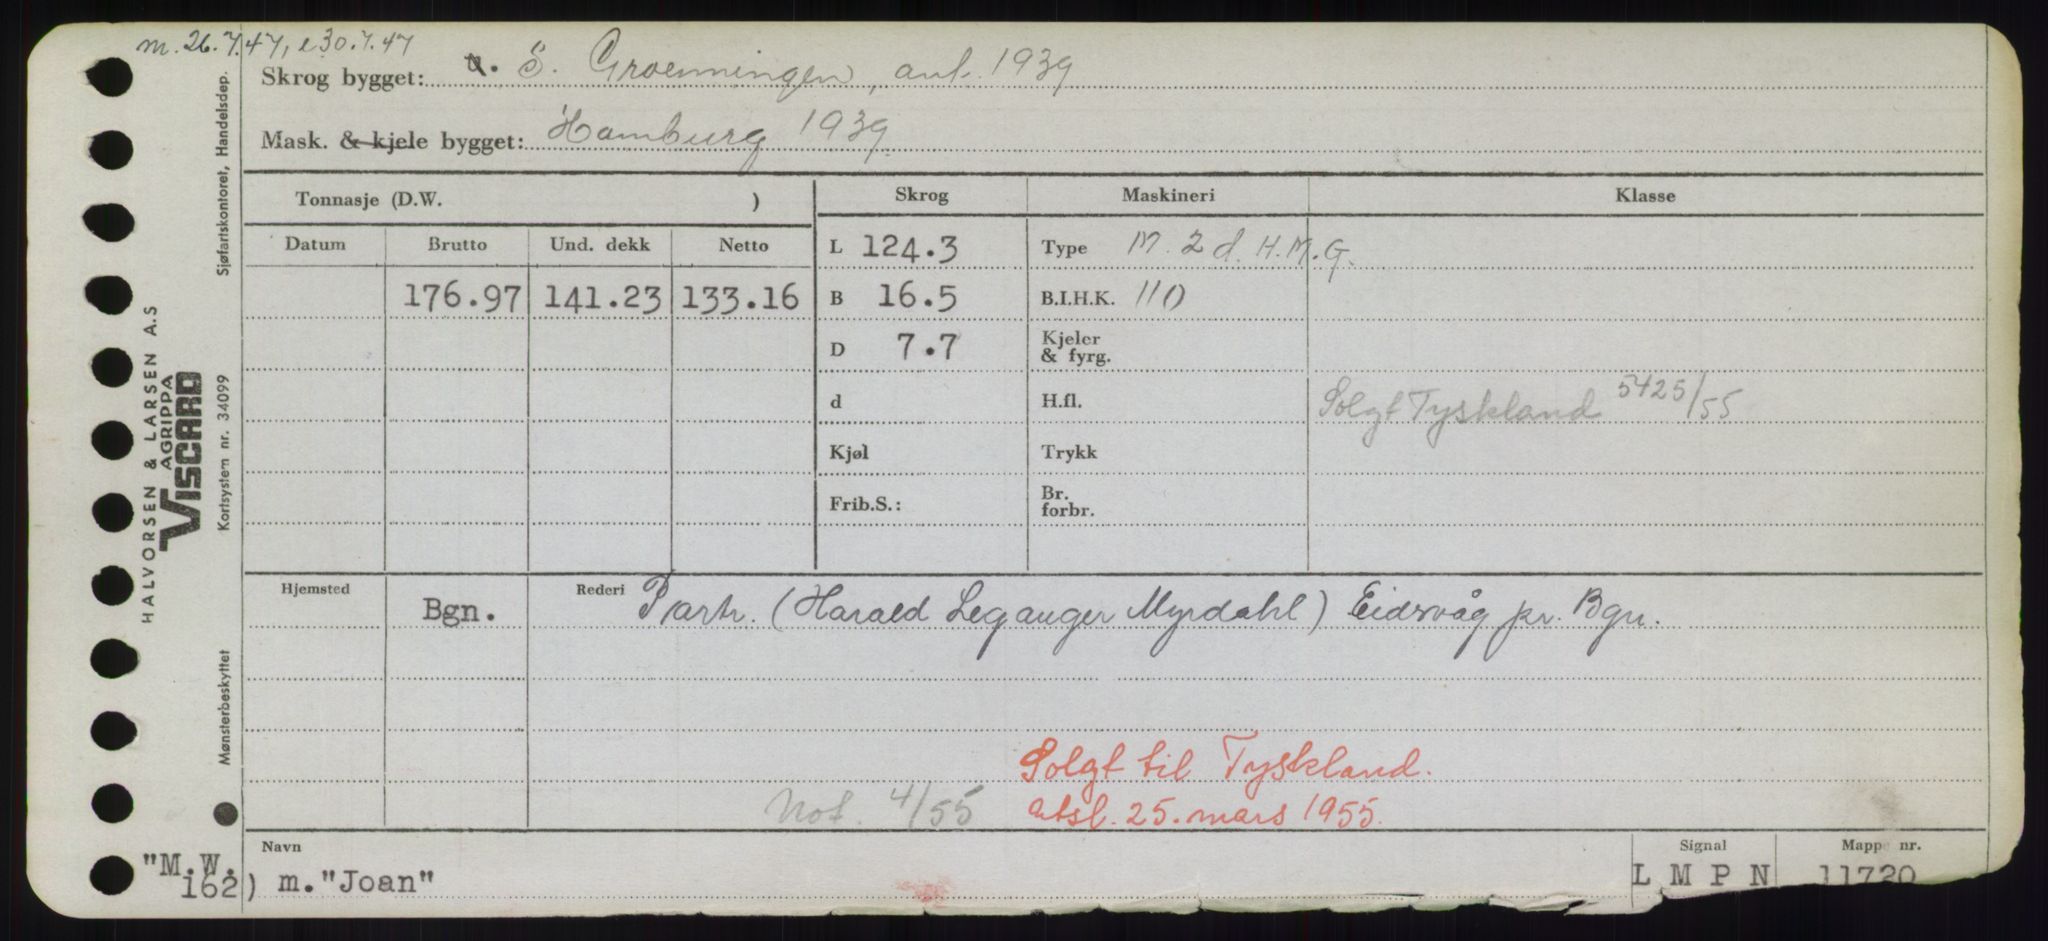 m. 26.7.47, e 30.7.47
Skrog bygget: S. Groenningen, ant. 1939
Mask. & kjele bygget: Hamburg 1939
Tonnasje (D.W. ) Skrog Maskineri Klasse
Datum Brutto Und. dekk Netto L 124.3 Type M. 2 d. H.M.G.
176.97 141.23 133.16 B 16.5 B.I.H.K. 110
D 7.7 Kjeler & fyrg.
d H.fl. Solgt Tyskland 5425/55
Kjøl Trykk
Frib.S.: Br. forbr.
Hjemsted Bgn. Rederi Partr. (Harald Leganger Myrdahl) Eidsvåg pr. Bgn.
Solgt til Tyskland.
Not. 4/55 utsl. 25. mars 1955.
Navn Signal Mappe nr.
"M.W. 162) m. "Joan" L M P N 11720
HALVORSEN & LARSEN A.S
AGRIPPA
VISCARD
Sjøfartskontoret, Handelsdep.
Kortsystem nr. 34099
Mønsterbeskyttet